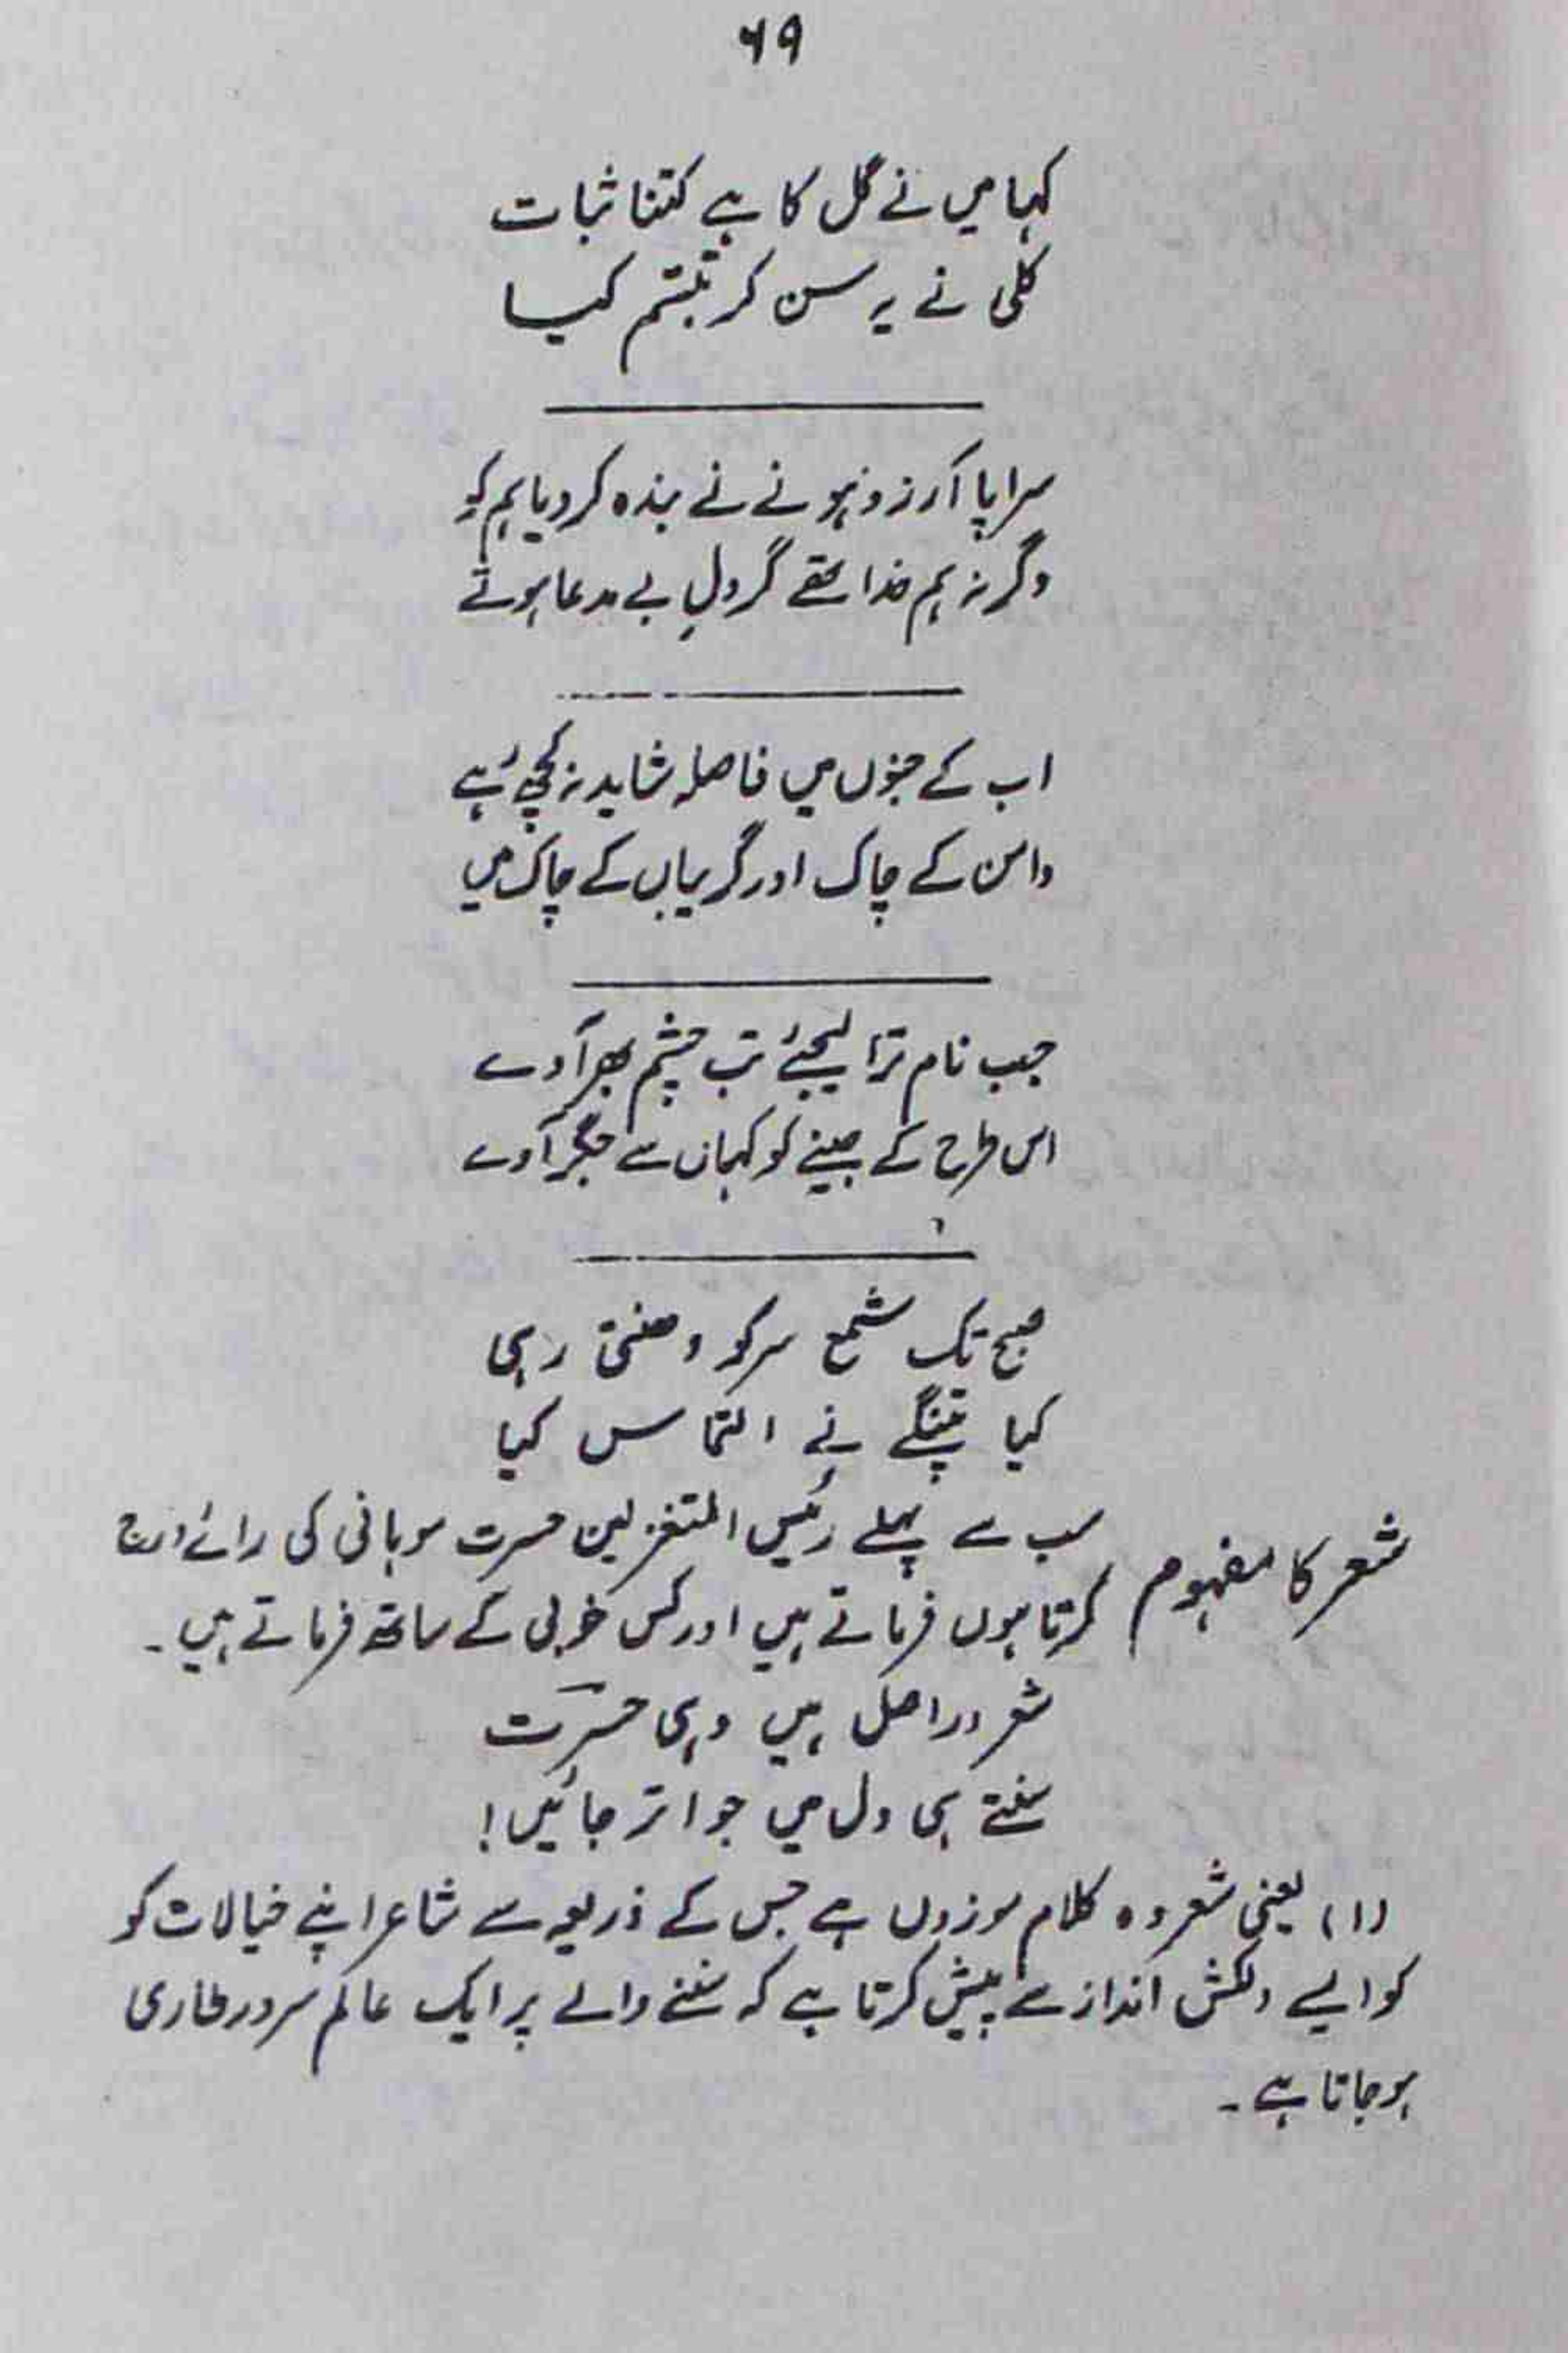 ۶۹
کہا میں نے گل کا ہے کتنا ثبات
کلی نے یہ سن کر تبسّم کیا
سراپا آرزو ہونے نے بندہ کر دیا ہم کو
وگرنہ ہم خدا تھے گر دلِ بے مدعا ہوتے
اب کے جنوں میں فاصلہ شاید نہ کچھ رہے
دامن کے چاک اور گریباں کے چاک میں
جب نام ترا لیجئے تب چشم بھر آوے
اس طرح کے جینے کو کہاں سے جگر آوے
صبح تک شمع سر کو دھنتی رہی
کیا پتنگے نے التماس کیا
شعر کا مفہوم سب سے پہلے رئیس المتغزلین حسرت موہانی کی رائے درج
کرتا ہوں فرماتے ہیں اور کس خوبی کے ساتھ فرماتے ہیں۔
شعر دراصل ہیں وہی حسرت
سنتے ہی دل میں جو اتر جائیں!
(۱) یعنی شعر وہ کلام موزوں ہے جس کے ذریعہ سے شاعر اپنے خیالات کو
کو ایسے دلکش انداز سے پیش کرتا ہے کہ سننے والے پر ایک عالم سرور طاری
ہو جاتا ہے۔